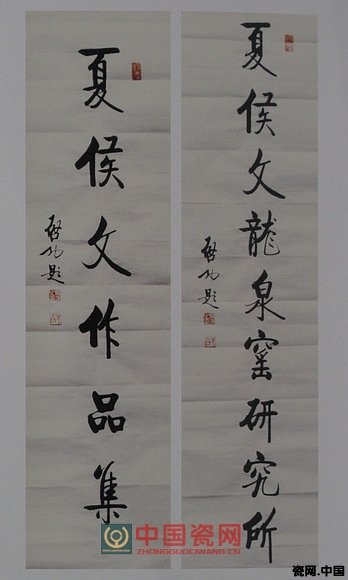 夏侯文龍泉窑研究所
啓功题
夏侯文作品集
啓功题
中国瓷网
ZHONGGUOCIWANG.CN
瓷网.中国